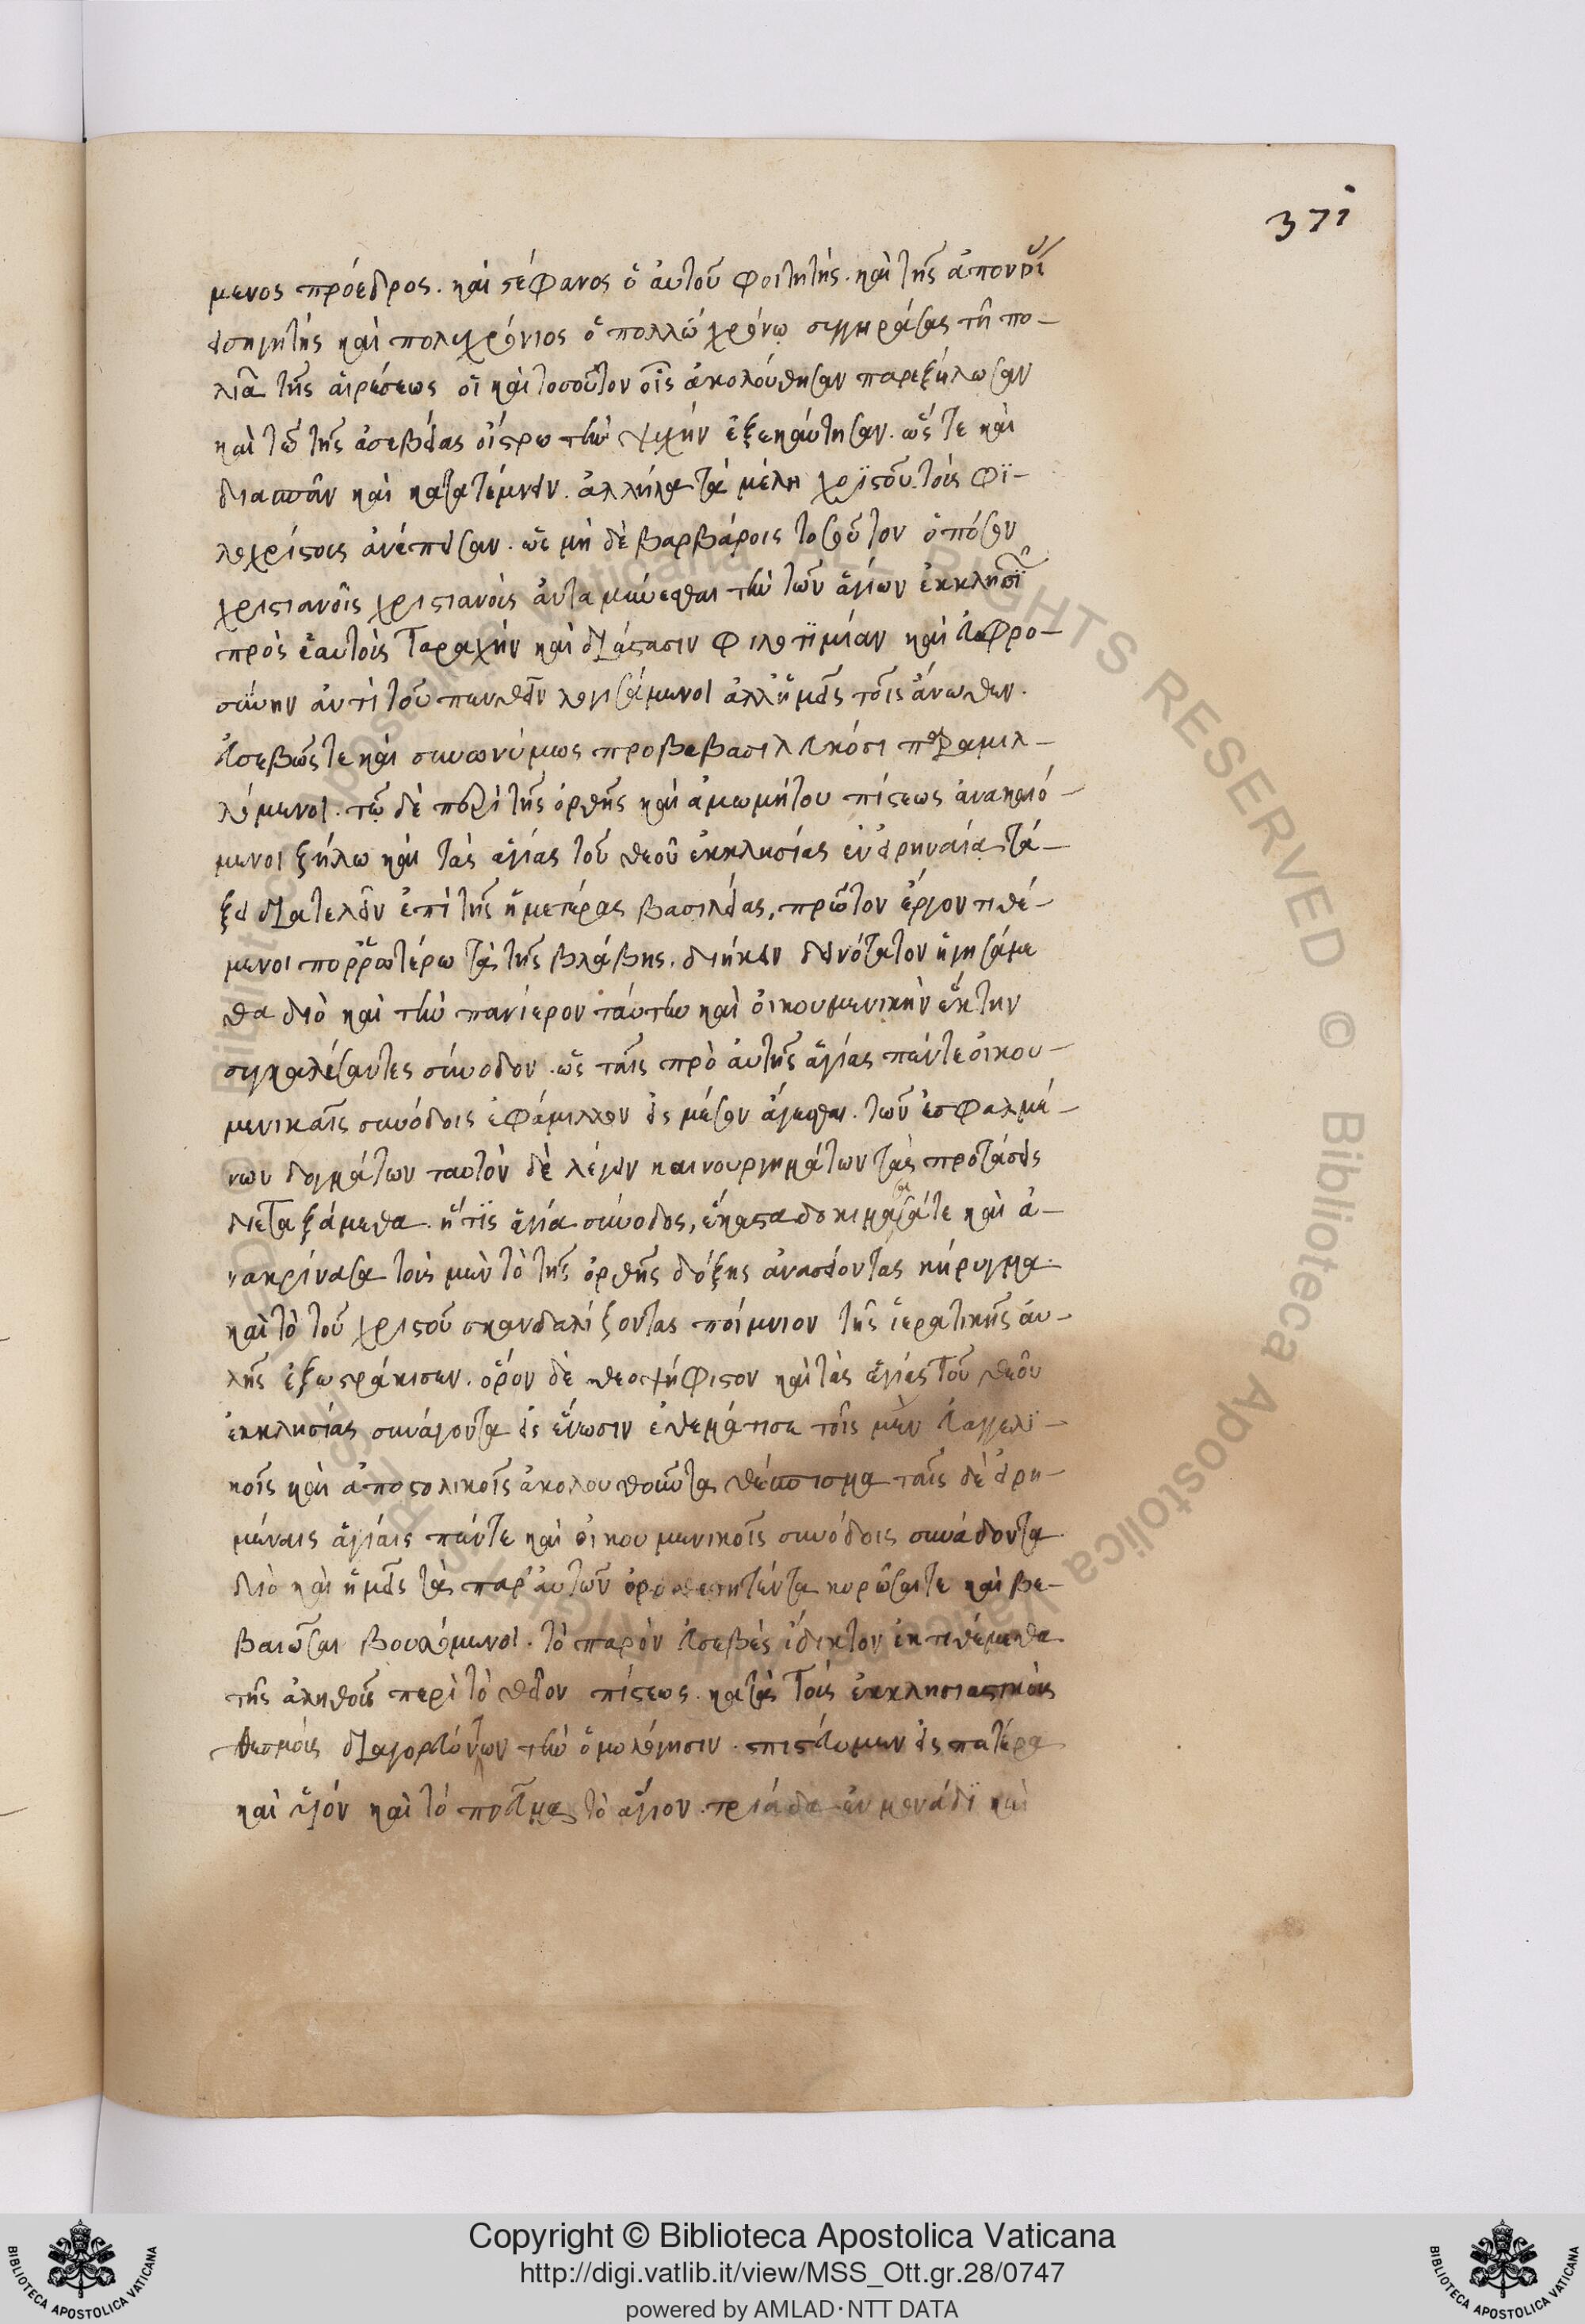 371
μενος πρόεδρος. καὶ στέφανος ὁ αὐτοῦ φοιτητής. καὶ τῆς ἀπονοί
εἰσηγητὴς καὶ πολυχρόνιος ὁ πολλῶ χρόνω συγγηράσας τῆ πο-
λιᾶ τῆς αἱρέσεως οἳ καὶ τοσοῦτον οἷς ἀκολούθησαν παρεζήλωσαν
καὶ τῶ τῆς ἀσεβείας οἴστρω τὴν ψυχήν ἐξεκαύτησαν. ὥστε καὶ
διασπᾶν καὶ κατατέμνειν. ἀλλήλα τὰ μέλη χριστοῦ τοὺς φι-
λοχρίστους ἀνέπεισαν. ὡς μὴ δὲ βαρβάροις τοσοῦτον ὁπόσον
χριστιανοῖς χριστιανοὺς ἀνταμύνεσθαι τὴν τῶν ἁγίων ἐκκλησιῶν
πρὸς ἑαυτοὺς ταραχὴν καὶ διάστασιν φιλοτιμίαν καὶ εὐφρο-
σύνην ἀντὶ τοῦ πενθεῖν λογισάμενοι ἀλλ' ἡμεῖς τοῖς ἄνωθεν.
εὐσεβῶς τε καὶ συνωνύμως προβεβασιλευκόσι παραμιλ-
λόμενοι. τῶ δὲ περὶ τῆς ὀρθῆς καὶ ἀμωμήτου πίστεως ἀνακαιό-
μενοι ζήλω καὶ τὰς ἁγίας τοῦ θεοῦ ἐκκλησίας ἐν εἰρηναία τά-
ξει διατελεῖν ἐπὶ τῆς ἡμετέρας βασιλείας, πρῶτον ἔργον τιθέ-
μενοι πορρωτέρω τὰ τῆς βλάβης. διήκειν δεινότατον ἡγησάμε
θα διὸ καὶ τὴν πανίερον ταύτην καὶ οἰκουμενικὴν ἕκτην
συγκαλέσαντες σύνοδον. ὡς ταῖς πρὸ αὐτῆς ἁγίας πέντε οἰκου-
μενικαῖς συνόδοις ἐφάμιλλον εἰς μέσον ἄγεσθαι. τῶν ἐσφαλμέ-
νων δογμάτων ταυτὸν δὲ λέγειν καινουργημάτων τὰς προτάσεις
διεταξάμεθα. ἥτις ἁγία σύνοδος, ἕκαστα δοκιμάσασά τε καὶ ἀ-
νακρίνασα τοὺς μὲν τὸ τῆς ὀρθῆς δόξης ἀνασείοντας κήρυγμα
καὶ τὸ τοῦ χριστοῦ σκανδαλίζοντας ποίμνιον τῆς ἱερατικῆς αὐ-
λῆς ἐξωστράκισεν. ὅρον δὲ θεοψήφιστον καὶ τὰς ἁγίας τοῦ θεοῦ
ἐκκλησίας συνάγοντα εἰς ἕνωσιν ἐθεμάτισε τοῖς μὲν εὐαγγελι-
κοῖς καὶ ἀποστολικοῖς ἀκολουθοῦντα θέσπισμα ταῖς δὲ εἰρη-
μέναις ἁγίαις πέντε καὶ οἰκουμενικοῖς συνόδοις συνάδοντα
διὸ καὶ ἡμεῖς τὰ παρ' αὐτῶν ὁροθετητέντα κυρῶσαί τε καὶ βε-
βαιῶσαι βουλόμενοι. τὸ παρὸν εὐσεβὲς ἴδικτον ἐκτιθέμεθα
τῆς ἀληθοῦς περὶ τὸ θεῖον πίστεως. κατὰ τοὺς ἐκκλησιαστικοὺς
θεσμοὺς διαγορευόντων τὴν ὁμολόγησιν. πιστεύομεν εἰς πατέρα
καὶ υἱόν καὶ τό πνεῦμα τὸ ἅγιον. τριάδα ἐν μονάδι καὶ
Copyright © Biblioteca Apostolica Vaticana
http://digi.vatlib.it/view/MSS_Ott.gr.28/0747
powered by AMLAD·NTT DATA